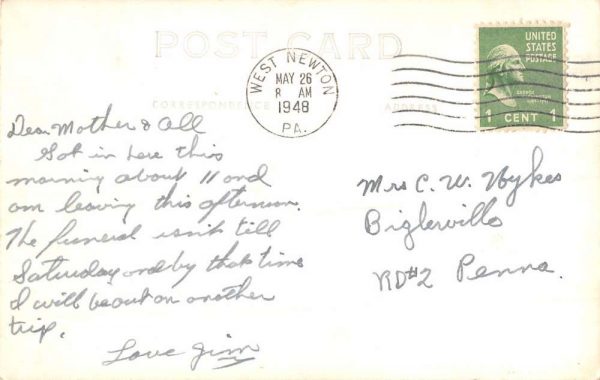 POST CARD
WEST NEWTON
MAY 26
8 AM
1948
PA.
UNITED
STATES
POSTAGE
1 CENT 1
CORRESPONDENCE
ADDRESS
Dear Mother & All
Got in here this
morning about 11 and
am leaving this afternoon.
The funeral isn't till
Saturday and by that time
I will be out on another
trip.
Love Jim
Mrs C. W. Wykes
Biglerville
RD#2 Penna.